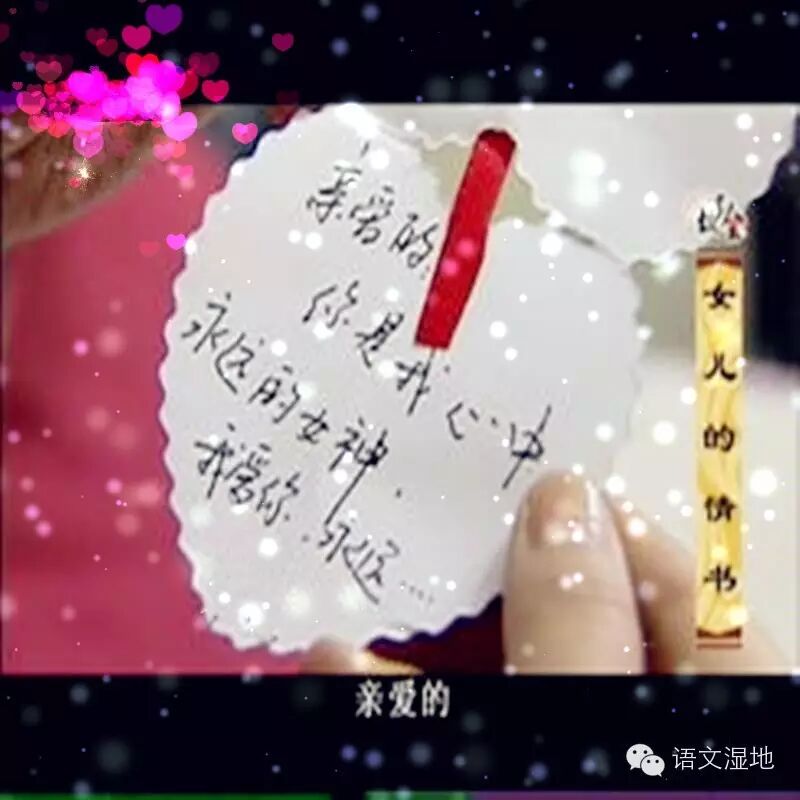 亲爱的:
你是我心中
永远的女神.
我爱你.永远....
女儿的情书
亲爱的
语文湿地